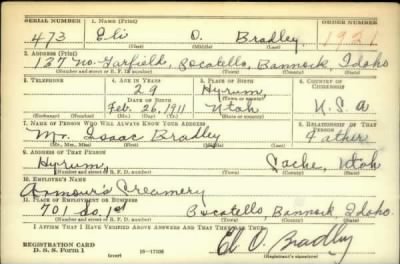 SERIAL NUMBER 1. NAME (Print) ORDER NUMBER
473 Eli O. Bradley 1921
(First) (Middle) (Last)
2. ADDRESS (Print)
127 No. Garfield, Pocatello, Bannock, Idaho
(Number and street or R. F. D. number) (Town) (County) (State)
3. TELEPHONE 4. AGE IN YEARS 5. PLACE OF BIRTH 6. COUNTRY OF CITIZENSHIP
29 Hyrum,
DATE OF BIRTH (Town or county)
Feb. 26, 1911 Utah U.S.A
(Exchange) (Number) (Mo.) (Day) (Yr.) (State or country)
7. NAME OF PERSON WHO WILL ALWAYS KNOW YOUR ADDRESS 8. RELATIONSHIP OF THAT PERSON
Mr. Isaac Bradley Father
(Mr., Mrs., Miss) (First) (Middle) (Last)
9. ADDRESS OF THAT PERSON
Hyrum, Cache, Utah
(Number and street or R. F. D. number) (Town) (County) (State)
10. EMPLOYER'S NAME
Armour's Creamery
11. PLACE OF EMPLOYMENT OR BUSINESS
701 So. 1st Pocatello, Bannock, Idaho.
(Number and street or R. F. D. number) (Town) (County) (State)
I AFFIRM THAT I HAVE VERIFIED ABOVE ANSWERS AND THAT THEY ARE TRUE.
REGISTRATION CARD
D. S. S. Form 1 (over) 16—17105 Eli O. Bradley
(Registrant's signature)